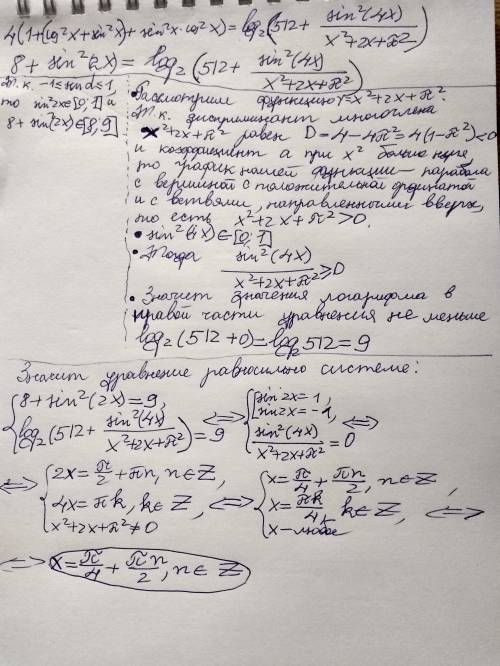 4(1+cos²x+sin²x)+sin²x·cos²x)=log₂(512+ sin²(4x)/(x²+2x+π²))
8+sin²(2x)= log₂(512+ sin²(4x)/(x²+2x+π²))
Т.к. -1≤sinα≤1,
то sin²2x∈[0;1] и
8+sin²(2x)∈[8;9]
Рассмотрим функцию Y=x²+2x+π².
Т.к. дискриминант многочлена
x²+2x+π² равен D=4-4π²=4(1-π²)<0
и коэффициент a при x² больше нуля,
то график нашей функции — парабола
с вершиной с положительной ординатой
и с ветвями, направленными вверх,
то есть x²+2x+π²>0.
• sin²(4x)∈[0;1]
• Тогда sin²(4x)/(x²+2x+π²)≥0
• Значит значения логарифма в
правой части уравнения не меньше
log₂(512+0)=log₂512=9
Значит уравнение равносильно системе:
{8+sin²(2x)=9,
log₂(512+ sin²(4x)/(x²+2x+π²))=9 <=> {[sin2x=1,
sin2x=-1,
sin²(4x)/(x²+2x+π²)=0 <=>
<=> {2x=π/2+πn, n∈Z,
4x=πk, k∈Z,
x²+2x+π²≠0 <=> {x=π/4+πn/2, n∈Z,
x=πk/4, k∈Z,
x-любое <=>
<=> x=π/4+πn/2, n∈Z